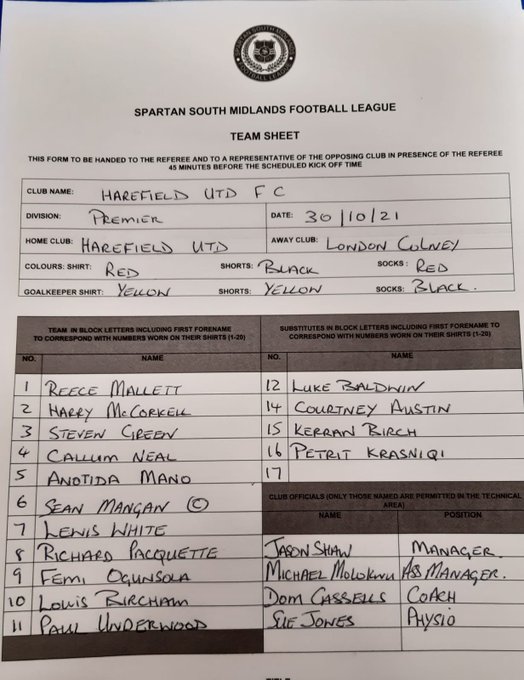 SPARTAN SOUTH MIDLANDS
FOOTBALL LEAGUE
SPARTAN SOUTH MIDLANDS FOOTBALL LEAGUE
TEAM SHEET
THIS FORM TO BE HANDED TO THE REFEREE AND TO A REPRESENTATIVE OF THE OPPOSING CLUB IN PRESENCE OF THE REFEREE
45 MINUTES BEFORE THE SCHEDULED KICK OFF TIME
CLUB NAME: HAREFIELD UTD F C
DIVISION: PREMIER DATE: 30/10/21
HOME CLUB: HAREFIELD UTD AWAY CLUB: LONDON COLNEY
COLOURS: SHIRT: RED SHORTS: BLACK SOCKS: RED
GOALKEEPER SHIRT: YELLOW SHORTS: YELLOW SOCKS: BLACK.
TEAM IN BLOCK LETTERS INCLUDING FIRST FORENAME
TO CORRESPOND WITH NUMBERS WORN ON THEIR SHIRTS (1-20)
NO. NAME
1 REECE MALLETT
2 HARRY McCORKELL
3 STEVEN GREEN
4 CALLUM NEAL
5 ANOTIDA MANO
6 SEAN MANGAN ©
7 LEWIS WHITE
8 RICHARD PACQUETTE
9 FEMI OGUNSOLA
10 LOUIS BIRCHAM
11 PAUL UNDERWOOD
SUBSTITUTES IN BLOCK LETTERS INCLUDING FIRST FORENAME TO
CORRESPOND WITH NUMBERS WORN ON THEIR SHIRTS (1-20)
NO. NAME
12 LUKE BALDWIN
14 COURTNEY AUSTIN
15 KERRAN BIRCH
16 PETRIT KRASNIQI
17
CLUB OFFICIALS (ONLY THOSE NAMED ARE PERMITTED IN THE TECHNICAL
AREA)
NAME POSITION
JASON SHAW MANAGER.
MICHAEL MOLOKWU ASS MANAGER.
DOM CASSELLS COACH
SUE JONES PHYSIO